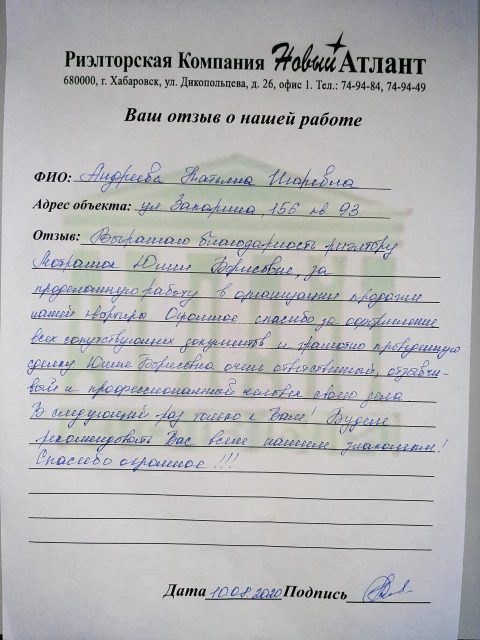 Риэлторская Компания Новый Атлант
680000, г. Хабаровск, ул. Дикопольцева, д. 26, офис 1. Тел.: 74-94-84, 74-94-49
Ваш отзыв о нашей работе
ФИО: Андреева Татьяна Игоревна
Адрес объекта: ул Запарина, 156 кв. 93
Отзыв: Выражаю благодарность риэлтору
Юлии Борисовне, за
проделанную работу в организации продажи
нашей квартиры Огромное спасибо за оформление
всех сопутствующих документов и грамотно проведенную
сделку Юлия Борисовна очень ответственный, отзывчи-
вый и профессиональный человек своего дела.
В следующий раз только к Вам! Будем
рекомендовать Вас всем нашим знакомым!
Спасибо огромное!!!
Дата 10.08.2020 Подпись